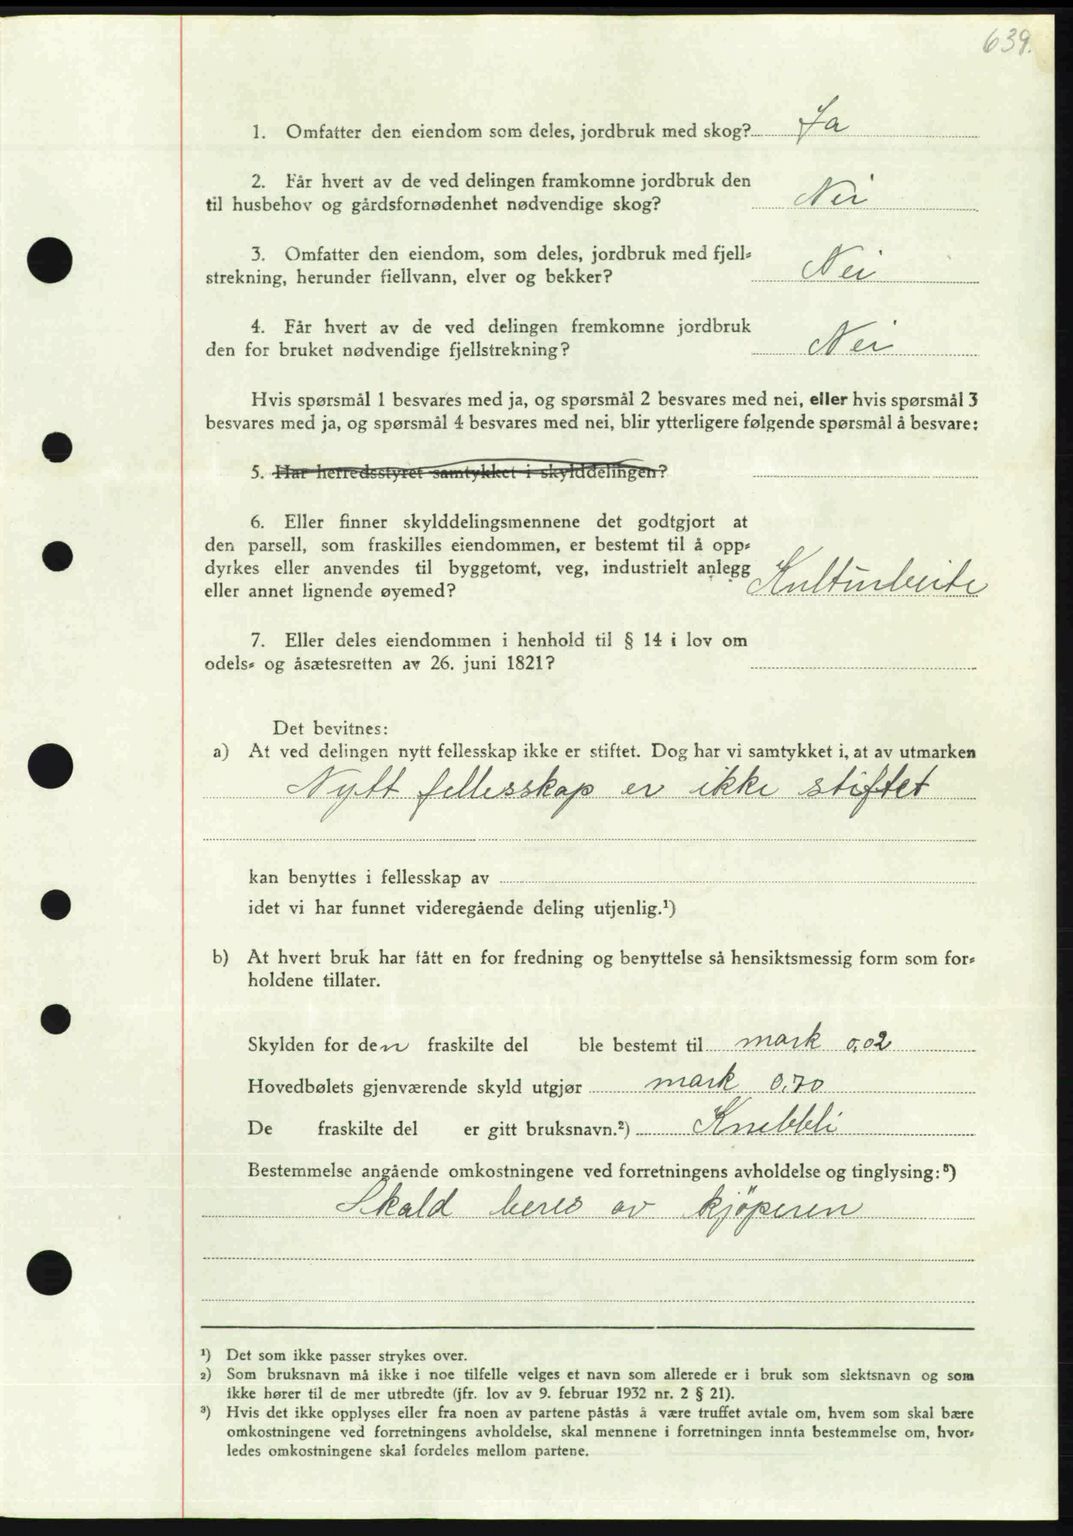 639.
1. Omfatter den eiendom som deles, jordbruk med skog? Ja
2. Får hvert av de ved delingen framkomne jordbruk den
til husbehov og gårdsfornødenhet nødvendige skog? Nei
3. Omfatter den eiendom, som deles, jordbruk med fjell=
strekning, herunder fjellvann, elver og bekker? Nei
4. Får hvert av de ved delingen fremkomne jordbruk
den for bruket nødvendige fjellstrekning? Nei
Hvis spørsmål 1 besvares med ja, og spørsmål 2 besvares med nei, eller hvis spørsmål 3
besvares med ja, og spørsmål 4 besvares med nei, blir ytterligere følgende spørsmål å besvare:
5. Har herredsstyret samtykket i skylddelingen?
6. Eller finner skylddelingsmennene det godtgjort at
den parsell, som fraskilles eiendommen, er bestemt til å opp=
dyrkes eller anvendes til byggetomt, veg, industrielt anlegg
eller annet lignende øyemed? Kulturbeite
7. Eller deles eiendommen i henhold til § 14 i lov om
odels= og åsætesretten av 26. juni 1821?
Det bevitnes:
a) At ved delingen nytt fellesskap ikke er stiftet. Dog har vi samtykket i, at av utmarken
Nytt fellesskap er ikke stiftet
kan benyttes i fellesskap av
idet vi har funnet videregående deling utjenlig.¹)
b) At hvert bruk har fått en for fredning og benyttelse så hensiktsmessig form som for=
holdene tillater.
Skylden for den fraskilte del ble bestemt til mark 0,02
Hovedbølets gjenværende skyld utgjør mark 0,70
De fraskilte del er gitt bruksnavn.²) Knebbli
Bestemmelse angående omkostningene ved forretningens avholdelse og tinglysing:³)
Skald beres av kjöperen
¹) Det som ikke passer strykes over.
²) Som bruksnavn må ikke i noe tilfelle velges et navn som allerede er i bruk som slektsnavn og som
ikke hører til de mer utbredte (jfr. lov av 9. februar 1932 nr. 2 § 21).
³) Hvis det ikke opplyses eller fra noen av partene påstås å være truffet avtale om, hvem som skal bære
omkostningene ved forretningens avholdelse, skal mennene i forretningen innta bestemmelse om, hvor=
ledes omkostningene skal fordeles mellom partene.